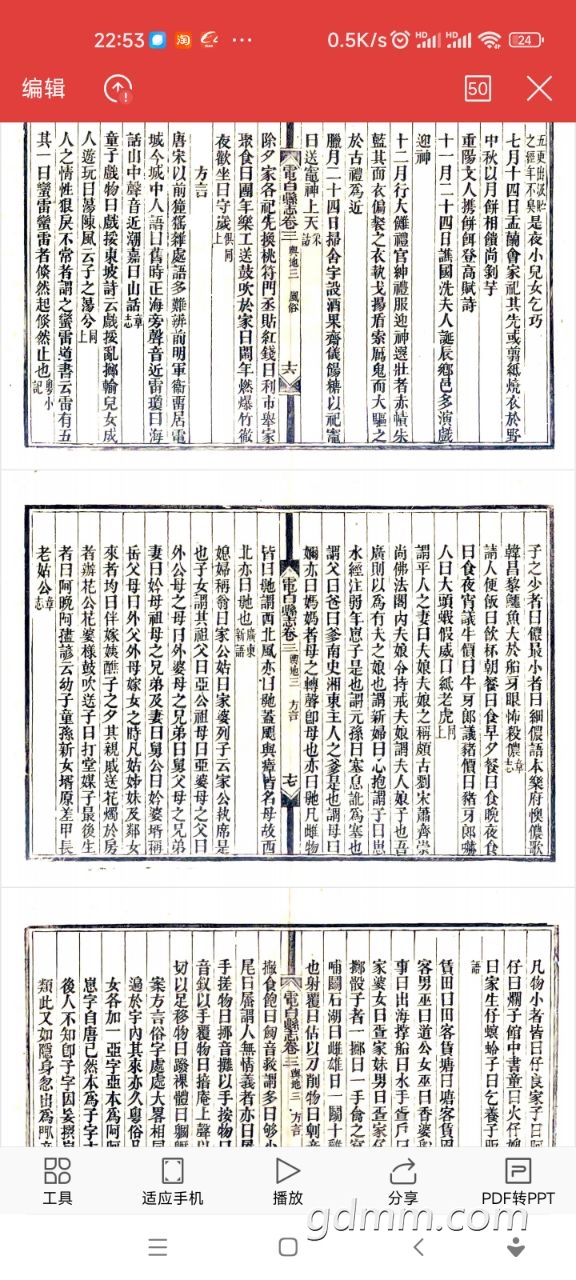 22:53
0.5K/s
24
编辑
50
是夜小兒女乞巧
七月十四日盂蘭會家祀其先或剪紙燒衣於野
中秋以月餅相餽尚剝芋
重陽文人携餅餌登高賦詩
十一月二十四日譙國冼夫人誕辰鄉邑多演戲
迎神
十二月行大儺禮官紳禮服迎神選壯者赤幘朱
藍其面衣偏褧之衣執戈揚盾索厲鬼而大驅之
於古禮爲近
臘月二十四日掃舍宇設酒果齋儀餳糖以祀竈
曰送竈神上天
電白縣志卷三
輿地三 風俗
十六
除夕家各祀先換桃符門丞貼紅錢曰利市舉家
聚食曰團年樂工送鼓吹於家曰鬧年燃爆竹徹
夜歡坐曰守歲
方言
唐宋以前獞猺雜處語多難辨前明軍衛畱居電
城今城中人語曰舊時正海旁聲音近雷瓊曰海
話山中聲音近潮嘉曰山話
童子戲物曰戲挼東坡詩云戲挼亂擲輸兒女成
人遊玩曰蕩陳風云子之蕩兮
人之情性狠戾不常者謂之蠻雷道書云雷有五
其一曰蠻雷蠻雷者倏然起倏然止也
子之少者曰儂最小者曰細儂語本樂府懊儂歌
韓昌黎鱷魚大於船牙眼怖殺儂
請人便飯曰飲杯朝餐曰食早夕餐曰食晚夜食
曰食夜宵議牛價曰牛牙郎議豬價曰豬牙郎嚇
人曰大頭蝦假威曰紙老虎
謂平人之妻曰夫娘夫娘之稱頗古劉宋蕭齊崇
尚佛法閣內夫娘令持戒夫娘謂夫人娘子也吾
廣則以爲有夫之娘也謂新婦曰心抱謂子曰崽
水經注弱年崽子是也謂元孫曰塞息訛爲塞也
謂父曰爸曰爹南史湘東主人之爹是也謂母曰
嬭亦曰媽媽者母之轉聲卽母也亦曰馳凡雌物
電白縣志卷三
輿地三 方言
十七
皆曰馳謂西北風亦曰馳蓋颶與瘴皆名母故西
北亦曰馳也
媳婦稱翁曰家公姑曰家婆列子云家公執席是
也子女謂其祖父曰亞公祖母曰亞婆母之父曰
外公母之母曰外婆母之兄弟曰舅父母之兄弟
妻曰妗母祖母之兄弟及妻曰舅公曰妗婆壻稱
岳父母曰外父外母嫁女之時凡姑姊妹及鄰女
來者均曰伴嫁姨醮子之夕其親戚送花燭於房
者辦花公花婆樣鼓吹送子曰打堂媒子最後生
者曰阿晚阿盡諺云幼子童孫新女壻原差甲長
老姑公
凡物小者皆曰仔良家子曰阿
仔曰爛子館中書童曰火仔
曰家生仔螟蛉子曰乞養子
賃田曰田客賃塘曰塘客賃
客男巫曰道公女巫曰香婆
事曰出海撐船曰水手
家婆女曰
擲骰子者一擲曰一手
哺鬭石湖曰雌雄曰一鬭十
也射覆曰估以刀削物曰
電白縣志卷三
輿地三 方言
飽曰
尾曰屘謂人無情義者亦曰
手搓物曰挪音攤以手按物曰
音欽以手覆物曰揞庵上聲以
切以足移物曰
案方言俗字處處大畧相同
遍於宇內其來亦久粵俗
女各加一亞字亞本爲阿
崽字自唐已然本爲子字
後人不知卽子字因爰撰
類此又如隱身忽出爲
工具
适应手机
播放
分享
PDF转PPT
gdmm.com